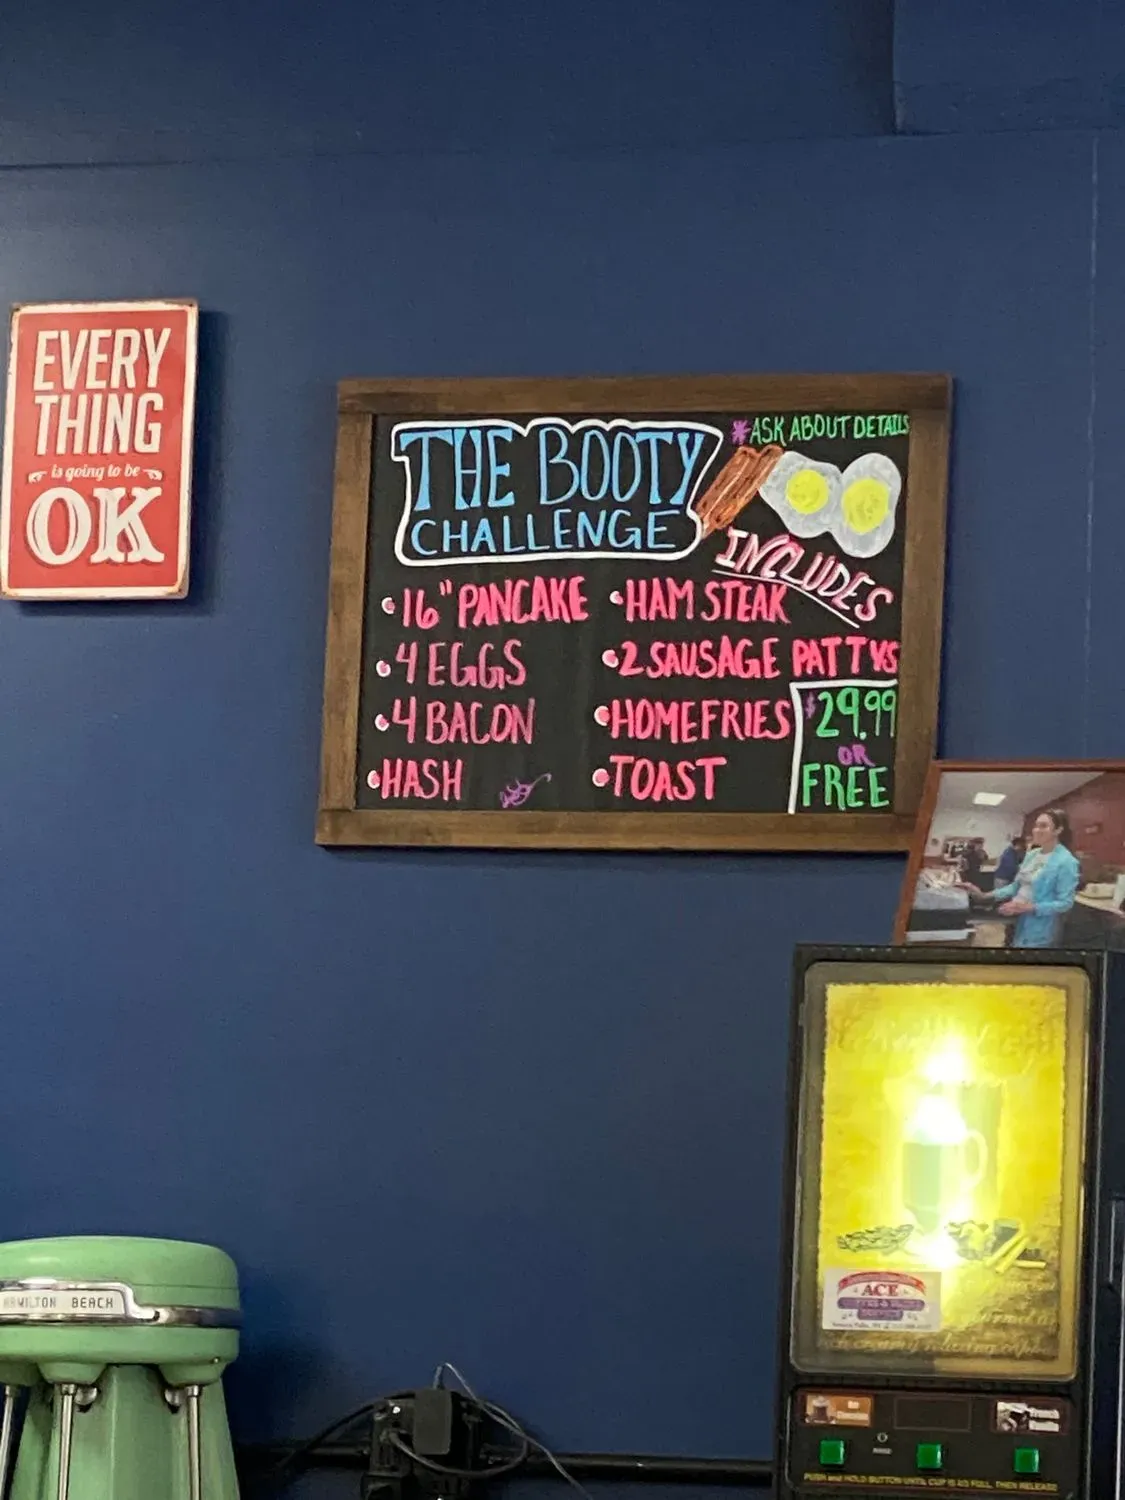 EVERY
THING
is going to be
OK
THE BOOTY
CHALLENGE
*ASK ABOUT DETAILS
INCLUDES
•16" PANCAKE
•4 EGGS
•4 BACON
•HASH
•HAM STEAK
•2 SAUSAGE PATTYS
•HOMEFRIES
•TOAST
$29.99
OR
FREE
HAMILTON BEACH
ACE
French
Vanilla
PUSH and HOLD BUTTON UNTIL CUP IS 2/3 FULL, THEN RELEASE